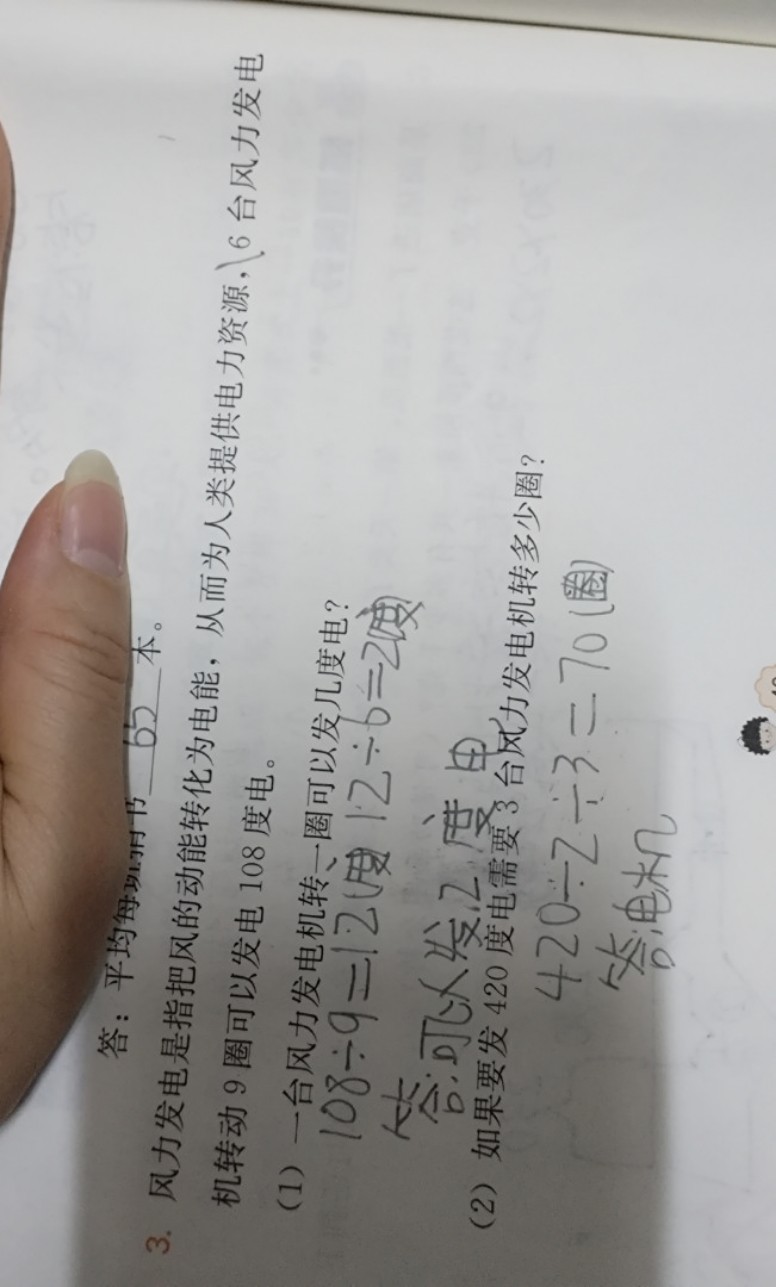 答：平均每班捐书 65 本。
3. 风力发电是指把风的动能转化为电能，从而为人类提供电力资源，6 台风力发电
机转动 9 圈可以发电 108 度电。
（1）一台风力发电机转一圈可以发几度电？
108÷9=12(度) 12÷6=2(度)
答:可以发2度电
（2）如果要发 420 度电需要 3 台风力发电机转多少圈？
420÷2÷3=70(圈)
答:电机